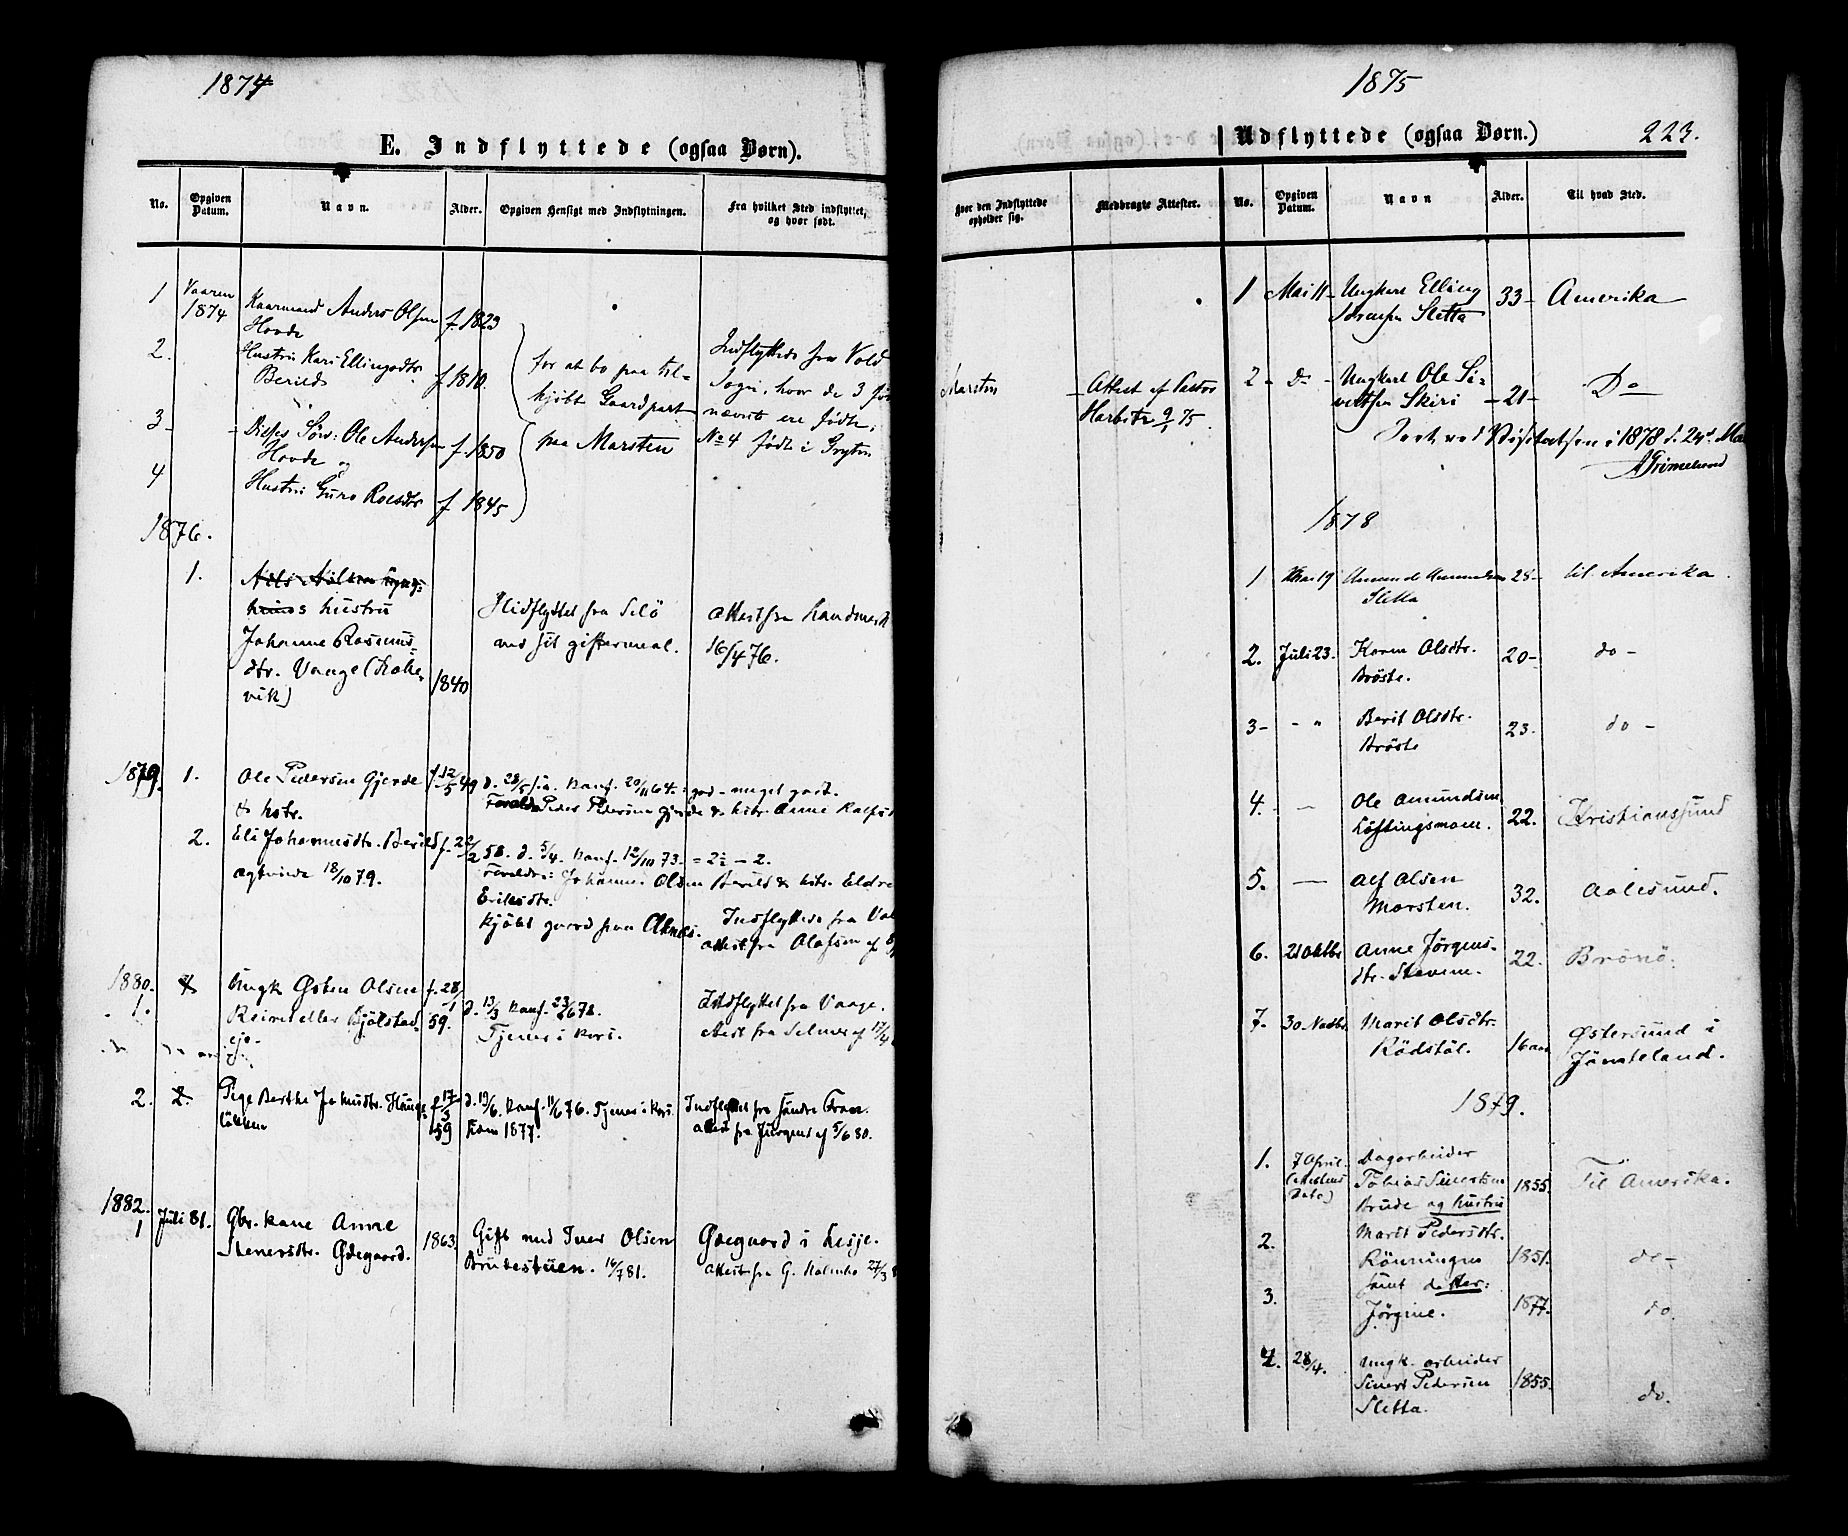 1874
E. Indflyttede (ogsaa Børn).
No.
Opgiven Datum.
Navn.
Alder.
Opgiven Hensigt med Indflytningen.
Fra hvilket Sted indflyttet, og hvor født.
1 Vaaren 1874 Kaarmand Anders Olsen Hovde f. 1823
2. Hustru Kari Ellingsdtr Berild f. 1810.
3 Disses Søn: Ole Andersen Hovde og f. 1850
4 Hustru Guro Roesdtr f 1845
for at bo paa til-
kjøbt Gaardpart
paa Marsten
Indflyttede fra Vold
Sogn, hvor de 3 før
nævnte ere fødte,
No 4 født i Grytten
1876.
1.
hustru
Johanne Rasmus-
dtr. Vaage
1840
Hidflyttet fra
ved sit giftermaal.
attest fra Landmark
16/4 76.
1879. 1. Ole Pedersen Gjerde f. 12/5 49 d. 28/5 s.a. Konf. 20/11 64. : god - meget godt.
& hstr. Forældre Peder Pedersen Gjerde & hstr. Anne
2. Eli Johannesdtr. Berild f. 22/2 58. d. 5/4. Konf. 12/10 73. = 2½ - 2.
ægtviede 18/10 79. Forældre: Johannes Olsen Berild & hstr. Eldre
Eriksdtr.
Kjøbt gaard paa
Indflyttede fra
attest fra Olafsen af
1880.
1. Ungk Østen Olsen f. 28/1 59. d. 13/3 Konf. 23/6 78. Indflyttet fra Vaage.
Reiret eller Bjølstad-
eje-
Tjener i Kors. Attest fra Selmer af 17/4
2. 2. Pige Berthe f 17/3 59 d. 19/6. Konf. 11/6 76. Tjener i Kors. Indflyttet fra søndre Fron.
løkken Kom 1877. attest fra Jürgens af 5/6 80.
1882.
1 Juli 81. Gbr. kone Anne 1863. Gift med Iver Olsen Ødegaard i Lesje.
Stenersdtr. Ødegaard. Brudestüen. 16/7 81. attest fra G. Holmbo 27/3
1875
Udflyttede (ogsaa Børn.) 223.
Hvor den Indflyttede opholder sig.
Medbragte Attester.
No.
Opgiven Datum.
Navn
Alder.
Til hvad Sted.
Marsten - Attest af Pastor
Harbitz 9/1 75.
1 Mai 11 - Ungkarl Elling 33 - Amerika
Sletta
2 - Do - Ungkarl Ole Si- - 21 - Do
vertsen Skiri
Seet ved Visitatsen i 1878 d. 24de Mai
AGrimelund
1878
1 Mai 19 Amund Amundsen 25 - til Amerika.
Sletta
2. Juli 23. Karen Olsdtr. 20 - do -
Brøste.
3 - - " Berit Olsdtr. 23. do -
Brøste
4. - Ole Amundsen 22. Kristianssund
Løftingsmoen.
5. - Alf Olsen 32. Aalesund.
Marsten.
6. 21 Oktbr Anne Jørgens- 22. Brønø.
dtr. Stavem.
7. 30 Novbr. Marit Olsdtr. 16 aar Østersund i
Rødstøl. Jämteland.
1879.
1. 7 April Dagarbeider
(Attestens Tobias Sivertsen 1855. Til Amerika.
Dato) Brude og hustru
2. Marit Pedersdtr.
Rønningen 1851. do -
samt datter:
3. Jørgine. 1877. do.
4. 28/4. Ungk. arbeider
Sivert Pedersen 1855. do.
Sletta.